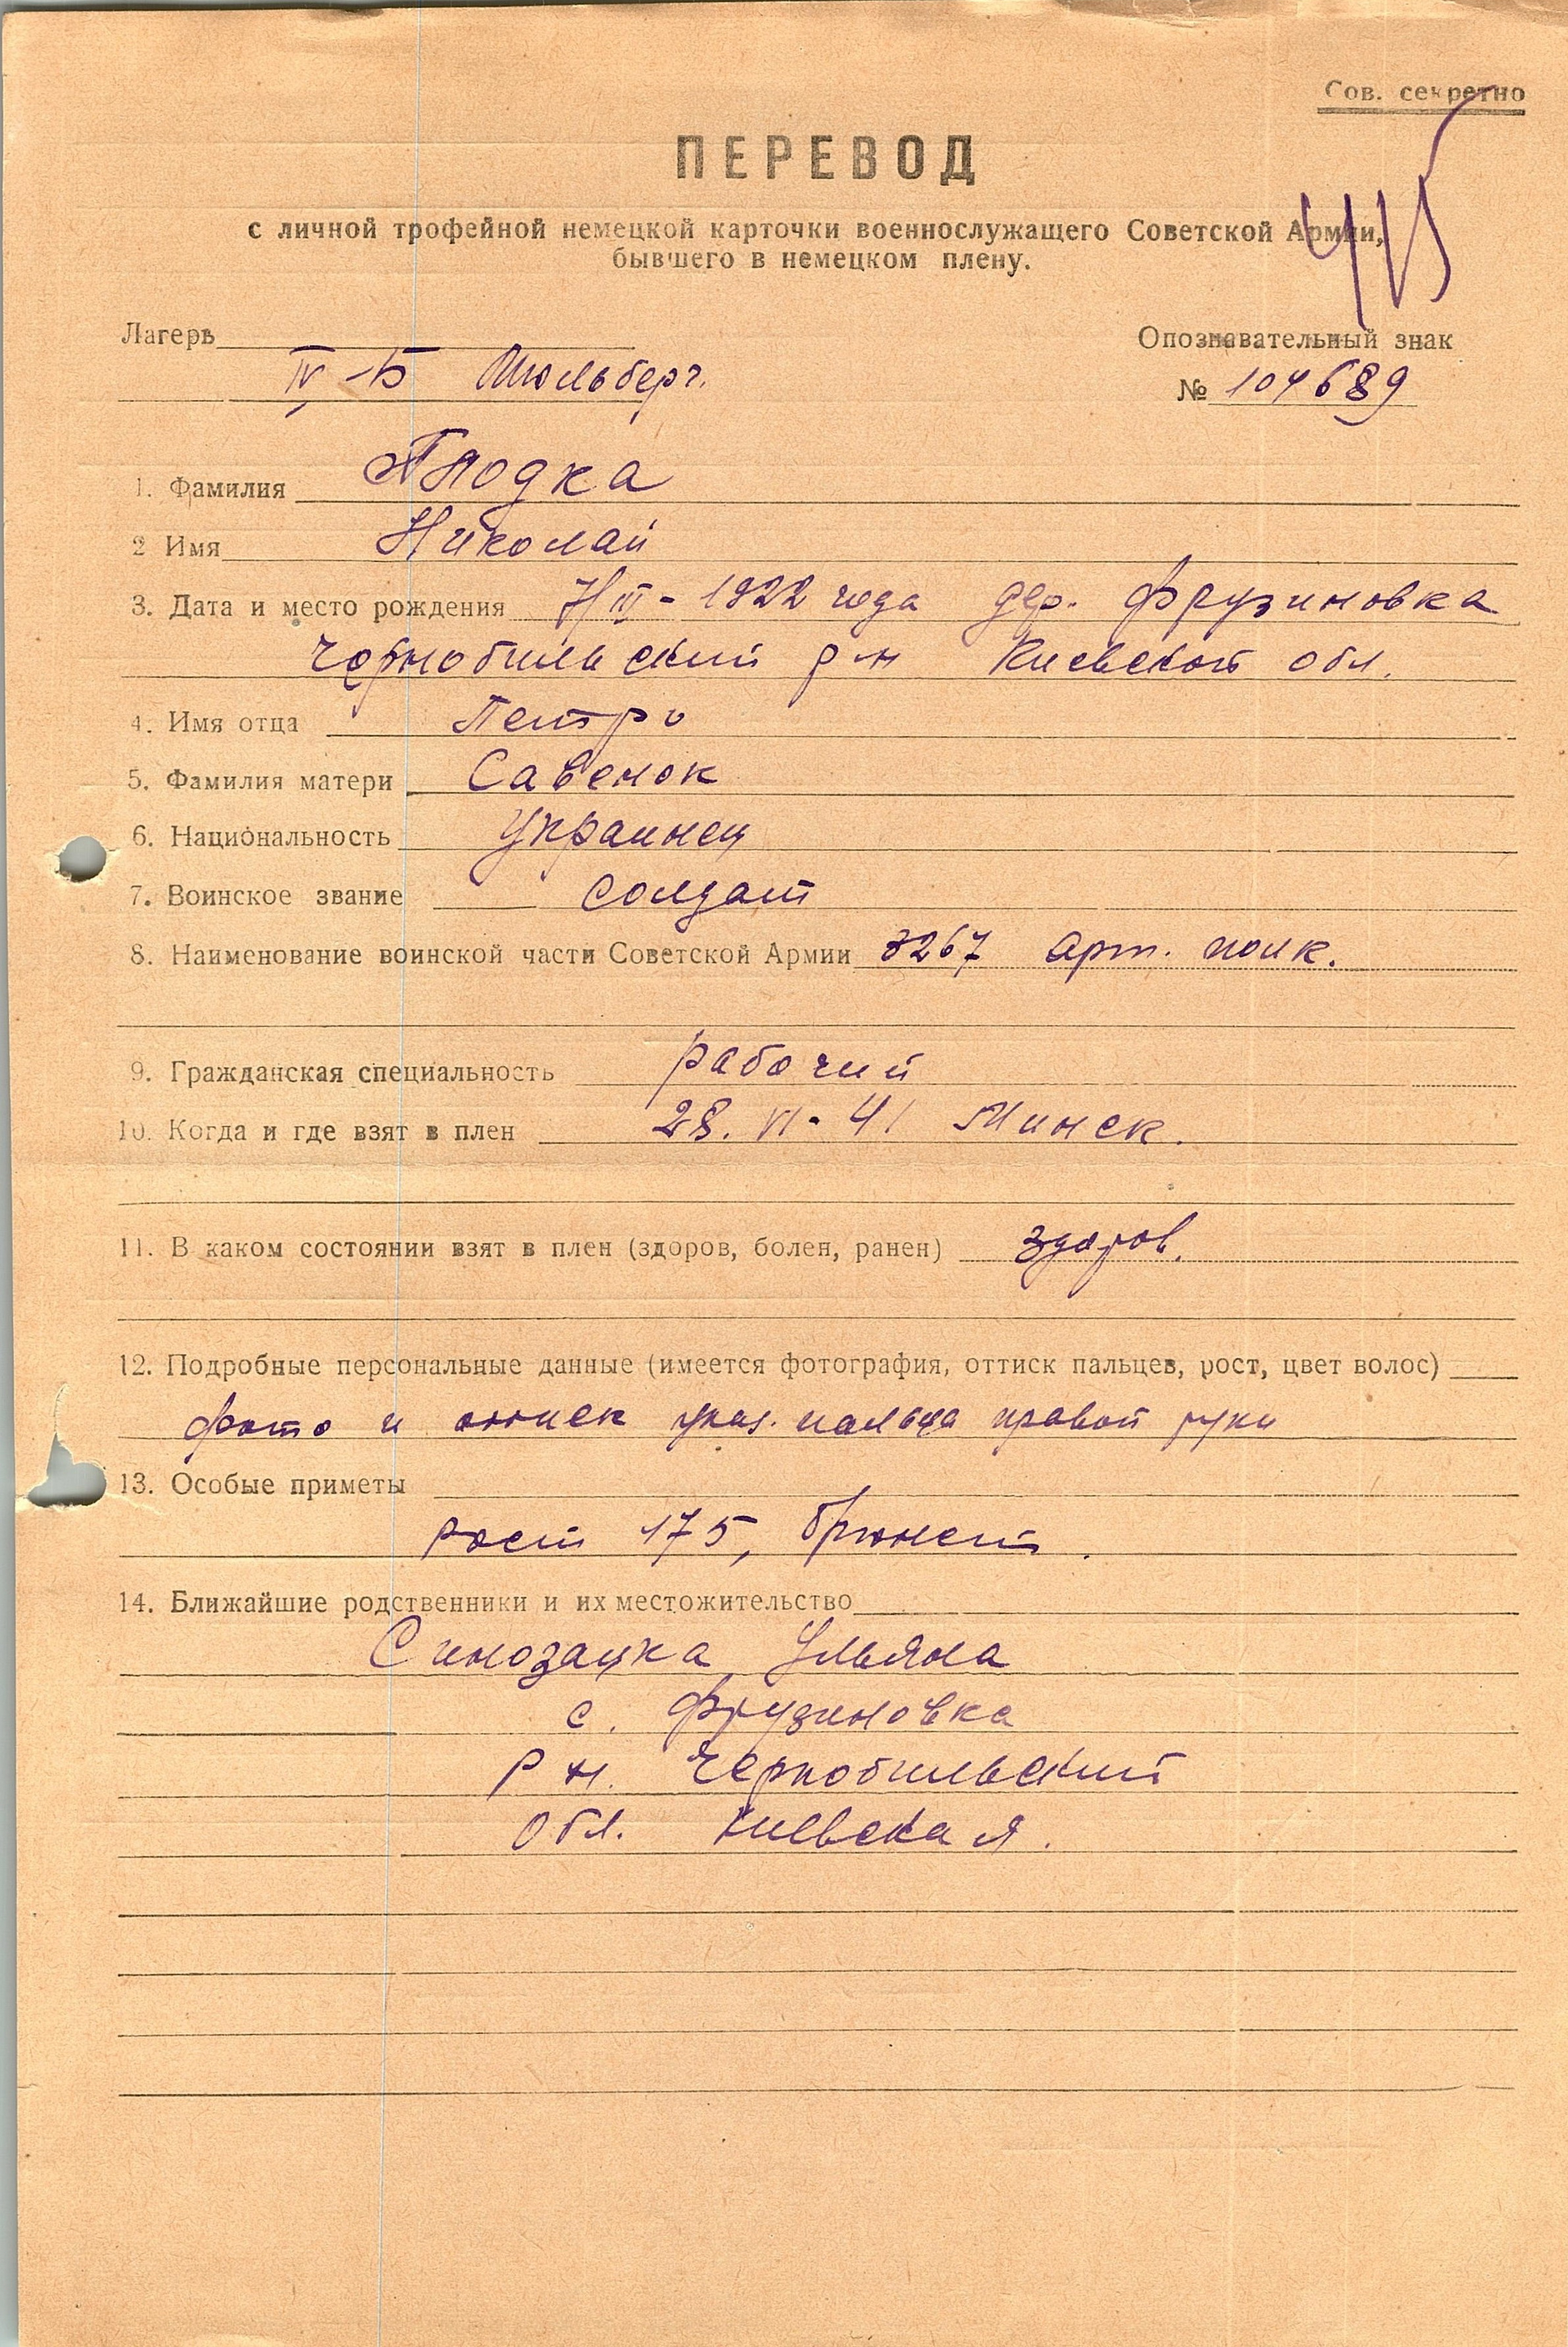 Сов. секретно
ПЕРЕВОД
415
с личной трофейной немецкой карточки военнослужащего Советской Армии,
бывшего в немецком плену.
Лагерь
Опознавательный знак
IV-Б Мюльберг.
№ 104689
1. Фамилия
2 Имя Николай
3. Дата и место рождения 7/III-1922 года дер. Фрузиновка
Чернобильский р-н Киевской обл.
4. Имя отца Петро
5. Фамилия матери Савенок
6. Национальность Украинец
7. Воинское звание солдат
8. Наименование воинской части Советской Армии 3267 арт. полк.
9. Гражданская специальность рабочий
10. Когда и где взят в плен 28.VI-41 Минск.
11. В каком состоянии взят в плен (здоров, болен, ранен) здоров.
12. Подробные персональные данные (имеется фотография, оттиск пальцев, рост, цвет волос)
фото и оттиск указ. пальца правой руки
13. Особые приметы
рост 175, брюнет.
14. Ближайшие родственники и их местожительство
Ульяна
с. Фрузиновка
р н. Чернобильский
обл. Киевская.